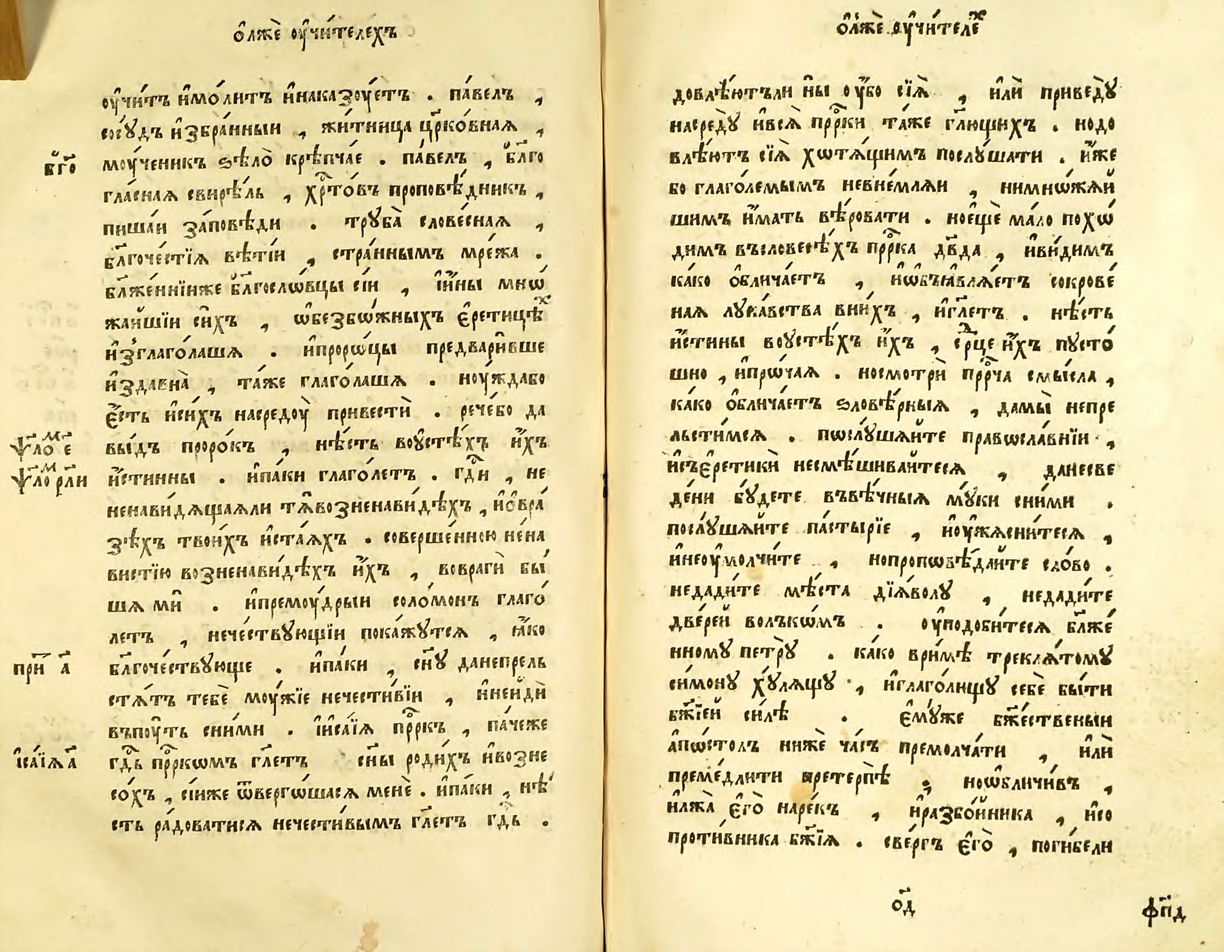 ѻ҆лже ᲂу҆чи́телехъ
ᲂу҆чи́тъ и҆мо́литъ и҆наказꙋ́етъ . па́велъ ,
сосꙋ́дъ и҆збра́нныи , жи́тница цр҃ко́вная ,
мꙋ́ченикъ ѕѣло̀ крѣ́пчае . па́велъ , бл҃го
гла́сная свирѣ́ль , хрⷭ҇то́въ проповѣ́дникъ ,
пиша́и за́повѣди . трꙋба̀ слове́сная ,
бл҃гоче́стїѧ вѣ́тїи , стра́ннымъ мре́жа .
бл҃же́ннїиже бл҃госло́вцы сїи , и҆и҆ны мнѡ
жа́ишїи си́хъ , ѡ҆безбо́жныхъ є҆рети́цѣⷯ
и҆зглаго́лашѧ . и҆проро́цы предвари́вше
и҆здавна̀ , та́же глаго́лашѧ . нонꙋ́ждабо
є҆́сть и҆си́хъ насредꙋ̀ привестѝ . рече́бо да
вы́дъ проро́къ , нѣ́сть воꙋстѣ́хъ и҆́хъ
и҆́стинны . и҆па́ки глаго́летъ . гдⷭ҇и , не
ненави́дѧщаѧли тѧ̀возненави́дѣхъ , и҆ѡ҆вра
зѣ́хъ твои́хъ и҆ста́ѧхъ . соверше́нною не́на
вистїю возненави́дѣхъ и҆́хъ , вовраги́ бы́
шѧ мѝ . и҆премꙋ́дрыи соломо́нъ глаго́
летъ , нече́ствꙋющїи пока́жꙋтсѧ , ꙗ҆́ко
бл҃гоче́ствꙋюще . и҆па́ки , сн҃ꙋ данепрель
стѧ́тъ тебѐ мꙋ́жїе нечести́вїи , и҆неидѝ
въпꙋ́ть сни́ми . и҆и҆са́їѧ прⷪ҇ркъ , па́чеже
гдⷭ҇ь прⷪ҇ркомъ гл҃етъ сн҃ы роди́хъ и҆возне
со́хъ , сі́иже ѿверго́шасѧ менѐ . и҆па́ки , нѣ́
сть ра́доватисѧ нечести́вымъ гл҃етъ гдⷭ҇ь .
бг҃о
ѱало́мⷨ е
ѱало́мⷨ рли
при а
и҆са́їѧ а
ѻ҆лже ᲂу҆чи́телеⷯ
довлѣ́ютъли ны̀ ᲂу҆́бо сїѧ̀ , и҆лѝ приведꙋ̀
насредꙋ̀ и҆всѧ̀ прⷪ҇рки та́же гл҃ющихъ . нодо
влѣ́ютъ сїѧ̀ хотѧ́щимъ послꙋ́шати . и҆́же
бо глаго́лемымъ невне́млѧи , ними́ѡжаи
шимъ и҆́мать вѣ́ровати . ное҆щѐ ма́ло похо́
димъ въсловесѣ́хъ прⷪ҇рка дв҃да , и҆ви́димъ
ка́ко ѡ҆блича́етъ , и҆ѡ҆бъꙗвлѧ́етъ сокрове́
наѧ лꙋка́вства вни́хъ , и҆гл҃етъ . нѣ́сть
и҆́стины воꙋстѣ́хъ и҆́хъ , се́рⷣце и҆́хъ пꙋсто́
шно , и҆про́чаѧ . носмотри́ прⷪ҇рча смы́сла ,
ка́ко ѡ҆блича́етъ ѕловѣ́рныѧ , дамы̀ непре
льсти́мсѧ . послꙋ́шайте правосла́внїи ,
и҆съє҆ретикѝ несмѣ́шивайтесѧ , данесве
де́ни бꙋ́дете въвѣ́чныѧ мꙋ́ки сни́ми .
послꙋ́шайте па́стырїе , и҆ᲂу҆жа́снитесѧ ,
и҆неᲂу҆молчи́те , нопроповѣ́дайте сло́во .
недади́те мѣ́ста дїѧ́волꙋ , недади́те
две́рей во́лкомъ . ᲂу҆подо́битесѧ бл҃же́
нномꙋ петрꙋ̀ . ка́ко ври́мѣ треклѧ́томꙋ
си́монꙋ хꙋ́лѧщꙋ , и҆глаго́лющꙋ себѐ бы́ти
бж҃їей си́лѣ . є҆мꙋ́же бж҃е́ственыи
а҆по́столъ нижѐ ча́съ премолча́ти , и҆лѝ
преме́длити претерпѣ̀ , ноѡ҆бличи́въ ,
и҆лжа̀ є҆го̀ наре́къ , и҆разбо́йника , и҆со
проти́вника бж҃їѧ . све́ргъ є҆го̀ , поги́бели
од
фп҃д